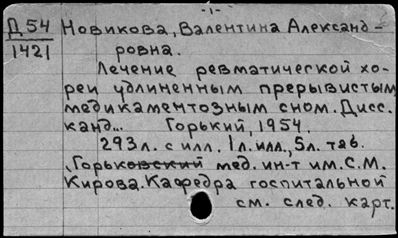 -1-
Д 54
1421
Новикова, Валентина Александ-
ровна.
Лечение ревматической хо-
реи удлиненным прерывистым
медикаментозным сном. Дисс.
канд... Горький, 1954.
293л. с илл. 1л. илл., 5л. таб.
Горьковский мед. ин-т им. С.М.
Кирова. Кафедра госпитальной
см. след. карт.